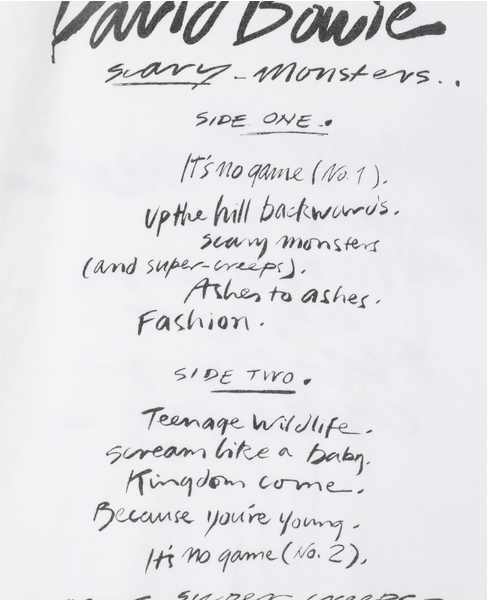 David Bowie
scary - monsters..
SIDE ONE.
It's no game (No. 1).
up the hill backwards.
scary monsters
(and super-creeps).
Ashes to ashes.
Fashion.
SIDE TWO.
Teenage wildlife.
scream like a baby.
Kingdom come.
Because you're young.
It's no game (No. 2).
super creeps